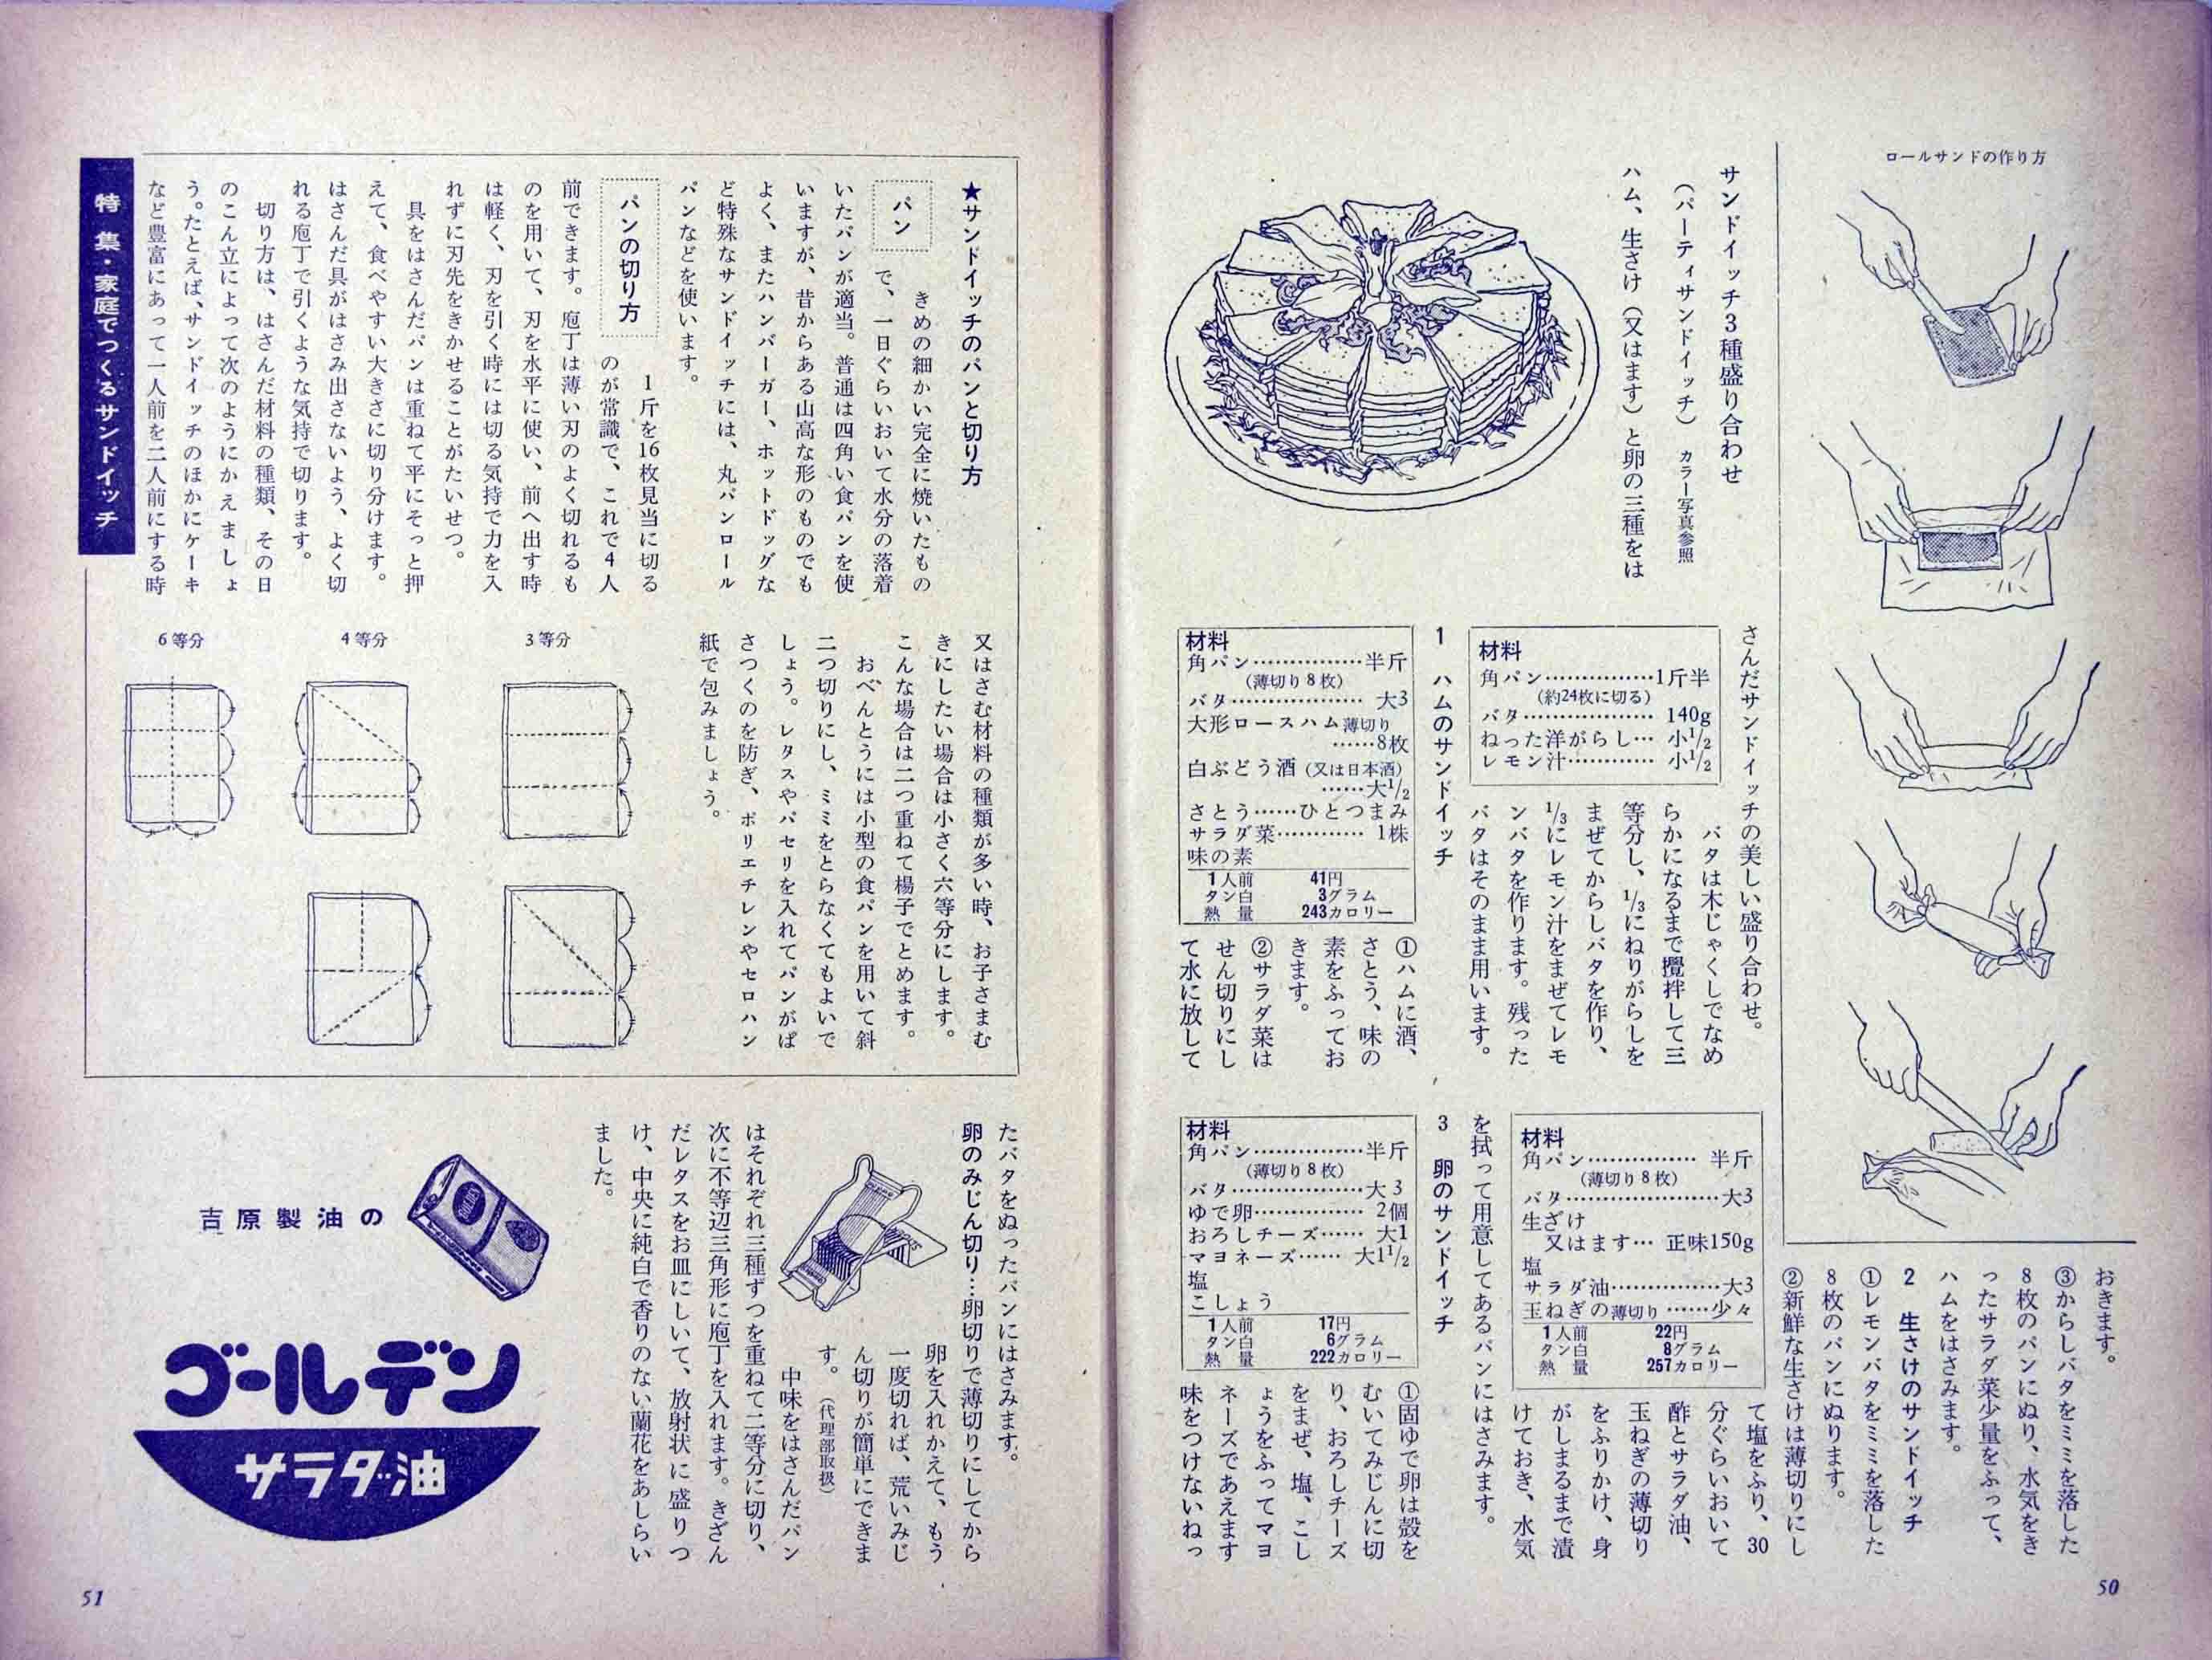 ロールサンドの作り方
サンドイッチ3種盛り合わせ
（パーティサンドイッチ） カラー写真参照
ハム、生さけ（又はます）と卵の三種をは
さんだサンドイッチの美しい盛り合わせ。
材料
角パン……………1斤半
（約24枚に切る）
バタ……………… 140g
ねった洋がらし… 小1/2
レモン汁………… 小1/2
バタは木じゃくしでなめ
らかになるまで攪拌して三
等分し、1/3にねりがらしを
まぜてからしバタを作り、
1/3にレモン汁をまぜてレモ
ンバタを作ります。残った
バタはそのまま用います。
1 ハムのサンドイッチ
材料
角パン……………半斤
（薄切り8枚）
バタ……………… 大3
大形ロースハム薄切り
……8枚
白ぶどう酒（又は日本酒）
……大1/2
さとう……ひとつまみ
サラダ菜………… 1株
味の素
1人前 41円
タン白 3グラム
熱量 243カロリー
①ハムに酒、
さとう、味の
素をふってお
きます。
②サラダ菜は
せん切りにし
て水に放して
おきます。
③からしバタをミミを落した
8枚のパンにぬり、水気をき
ったサラダ菜少量をふって、
ハムをはさみます。
2 生さけのサンドイッチ
①レモンバタをミミを落した
8枚のパンにぬります。
②新鮮な生さけは薄切りにし
材料
角パン…………… 半斤
（薄切り8枚）
バタ…………………大3
生ざけ
又はます… 正味150g
塩
サラダ油……………大3
玉ねぎの薄切り……少々
1人前 22円
タン白 8グラム
熱量 257カロリー
て塩をふり、30
分ぐらいおいて
酢とサラダ油、
玉ねぎの薄切り
をふりかけ、身
がしまるまで漬
けておき、水気
を拭って用意してあるパンにはさみます。
3 卵のサンドイッチ
材料
角パン……………半斤
（薄切り8枚）
バタ………………大3
ゆで卵…………… 2個
おろしチーズ…… 大1
マヨネーズ…… 大1 1/2
塩
こしょう
1人前 17円
タン白 6グラム
熱量 222カロリー
①固ゆで卵は殻を
むいてみじんに切
り、おろしチーズ
をまぜ、塩、こし
ょうをふってマヨ
ネーズであえます
味をつけないねっ
50
★サンドイッチのパンと切り方
パン
きめの細かい完全に焼いたもの
で、一日ぐらいおいて水分の落着
いたパンが適当。普通は四角い食パンを使
いますが、昔からある山高な形のものでも
よく、またハンバーガー、ホットドッグな
ど特殊なサンドイッチには、丸パンロール
パンなどを使います。
パンの切り方
1斤を16枚見当に切る
のが常識で、これで4人
前できます。庖丁は薄い刃のよく切れるも
のを用いて、刃を水平に使い、前へ出す時
は軽く、刃を引く時には切る気持で力を入
れずに刃先をきかせることがたいせつ。
具をはさんだパンは重ねて平にそっと押
えて、食べやすい大きさに切り分けます。
はさんだ具がはさみ出さないよう、よく切
れる庖丁で引くような気持で切ります。
切り方は、はさんだ材料の種類、その日
のこん立によって次のようにかえましょ
う。たとえば、サンドイッチのほかにケーキ
など豊富にあって一人前を二人前にする時
特集・家庭でつくるサンドイッチ
又はさむ材料の種類が多い時、お子さまむ
きにしたい場合は小さく六等分にします。
こんな場合は二つ重ねて楊子でとめます。
おべんとうには小型の食パンを用いて斜
二つ切りにし、ミミをとらなくてもよいで
しょう。レタスやパセリを入れてパンがぱ
さつくのを防ぎ、ポリエチレンやセロハン
紙で包みましょう。
3等分
4等分
6等分
たバタをぬったパンにはさみます。
卵のみじん切り…卵切りで薄切りにしてから
卵を入れかえて、もう
一度切れば、荒いみじ
ん切りが簡単にできま
す。（代理部取扱）
中味をはさんだパン
はそれぞれ三種ずつを重ねて二等分に切り、
次に不等辺三角形に庖丁を入れます。きざん
だレタスをお皿にしいて、放射状に盛りつ
け、中央に純白で香りのない蘭花をあしらい
ました。
吉原製油の
ゴールデン
サラダ油
51